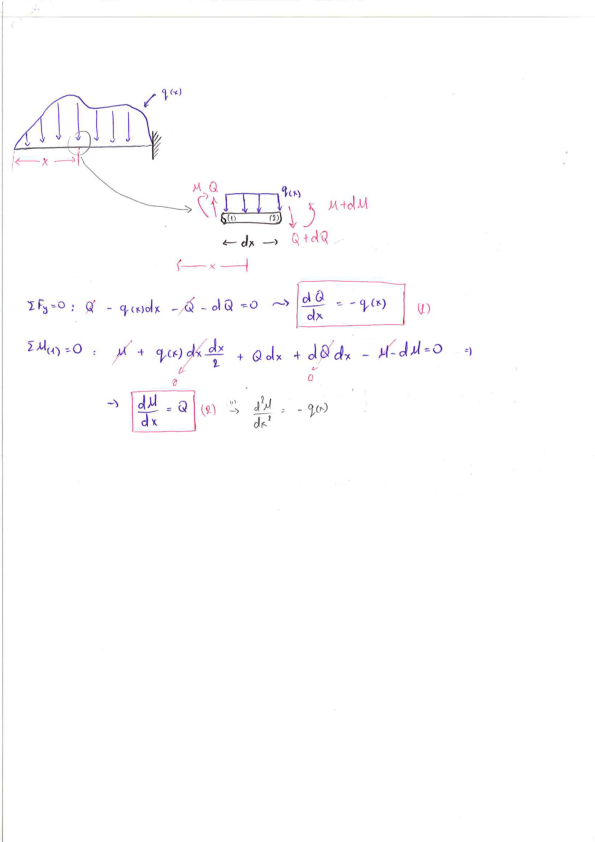 q(x)
x
M Q q(x) M+dM
(1) (2)
← dx → Q+dQ
x
ΣFy=0 : Q - q(x)dx - Q - dQ = 0 ⇝ dQ/dx = - q(x) (1)
ΣM(1)=0 : M + q(x) dx dx/2 + Q dx + dQ dx - M - dM = 0 ⇒
0
→ dM/dx = Q (2) (1)→ d²M/dx² = - q(x)